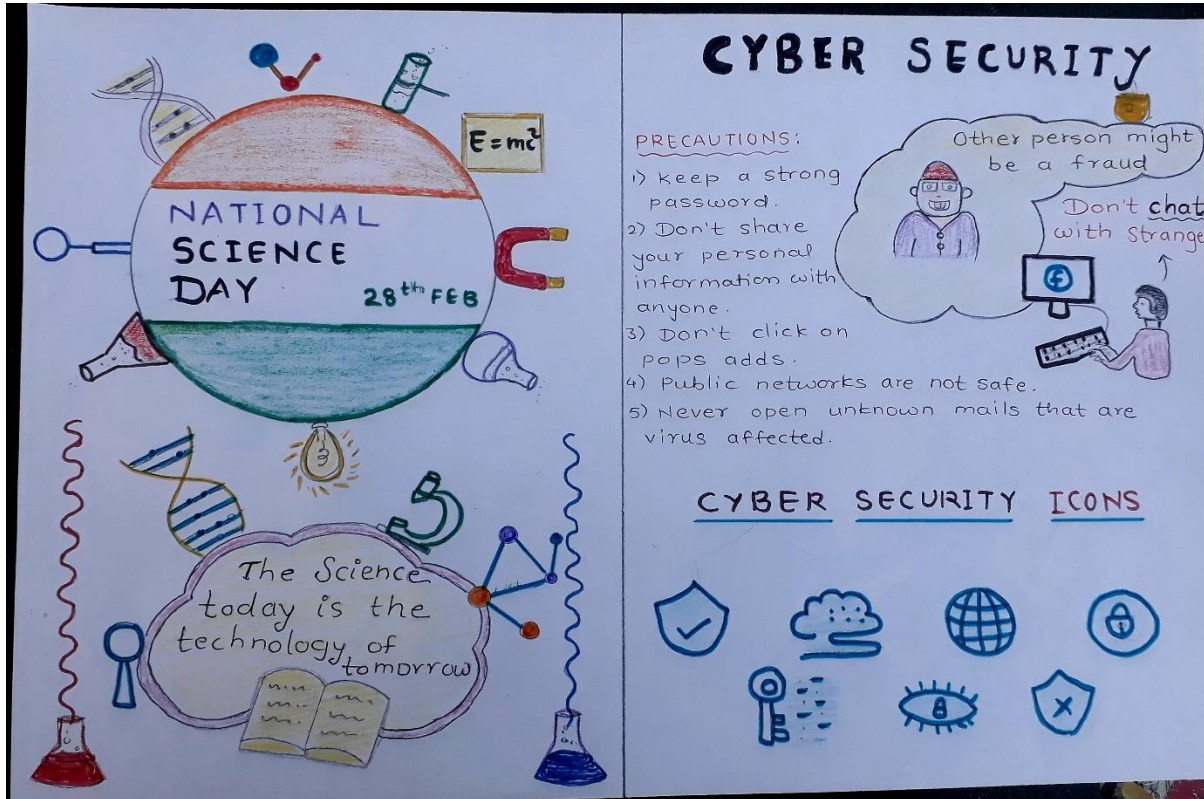 NATIONAL
SCIENCE
DAY
28th FEB
E=mc²
The Science
today is the
technology of
tomorrow
CYBER SECURITY
PRECAUTIONS:
1) Keep a strong
password.
2) Don't share
your personal
information with
anyone.
3) Don't click on
pops adds.
4) Public networks are not safe.
5) Never open unknown mails that are
virus affected.
Other person might
be a fraud
Don't chat
with Strange
f
CYBER SECURITY ICONS